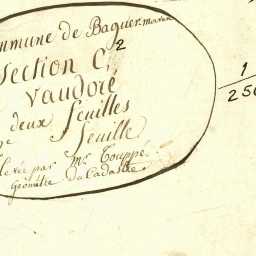 mmune de Baguer-morvan
Section C2
Vaudoré
deux feuilles
feuille
Levée par Mr. Touppé
Géomètre du Cadastre
1
250